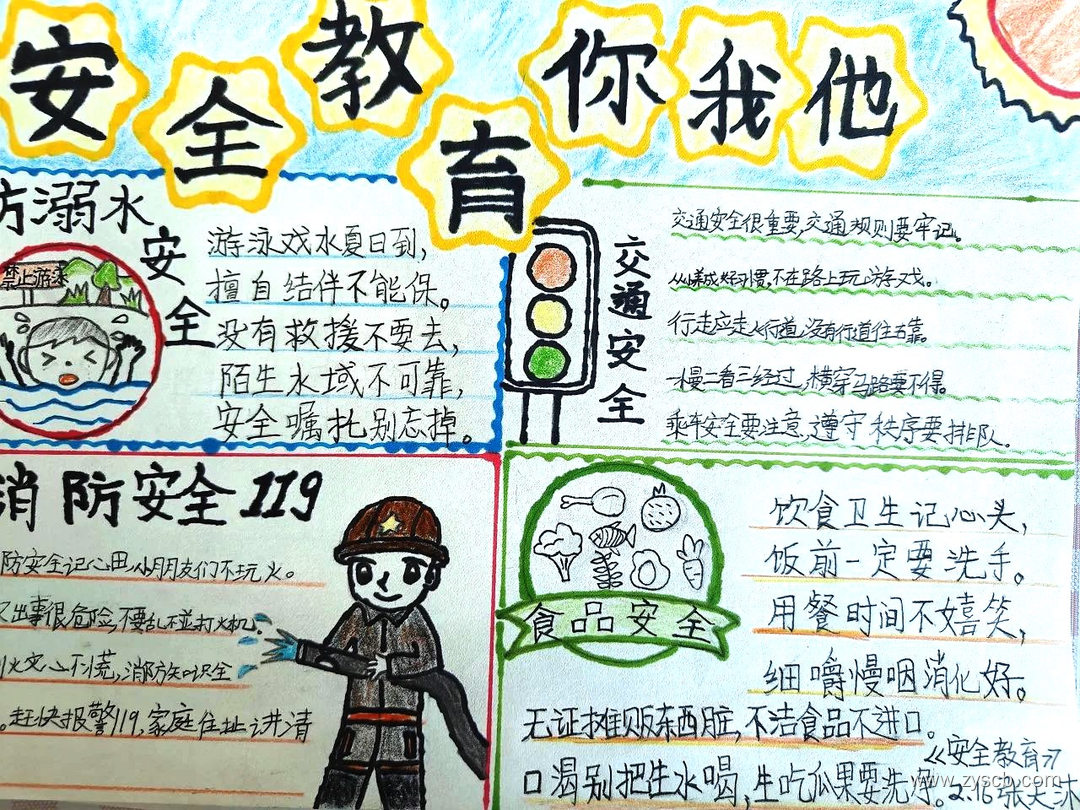 安全教育你我他
防溺水
安全
禁止游泳
游泳戏水夏日到，
擅自结伴不能保。
没有救援不要去，
陌生水域不可靠，
安全嘱托别忘掉。
交通安全
交通安全很重要，交通规则要牢记。
从小养成好习惯，不在路上玩游戏。
行走应走人行道，没有行道往右靠。
一慢二看三经过，横穿马路要不得。
乘车安全要注意，遵守秩序要排队。
消防安全119
防安全记心田小朋友们不玩火。
出事很危险，不要乱碰打火机，
火灾心不慌，消防知识全
。赶快报警119，家庭住址讲清
食品安全
饮食卫生记心头，
饭前一定要洗手。
用餐时间不嬉笑，
细嚼慢咽消化好。
无证摊贩东西脏，不洁食品不进口。
口渴别把生水喝，生吃瓜果要洗
《安全教育》
www.zyscb.com